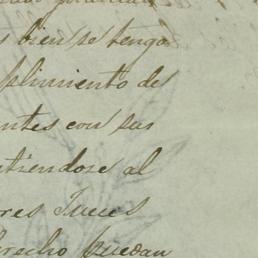 s bien se tenga
plimiento de
ntes con sus
tiendose al
res Jueces
erecho puedan